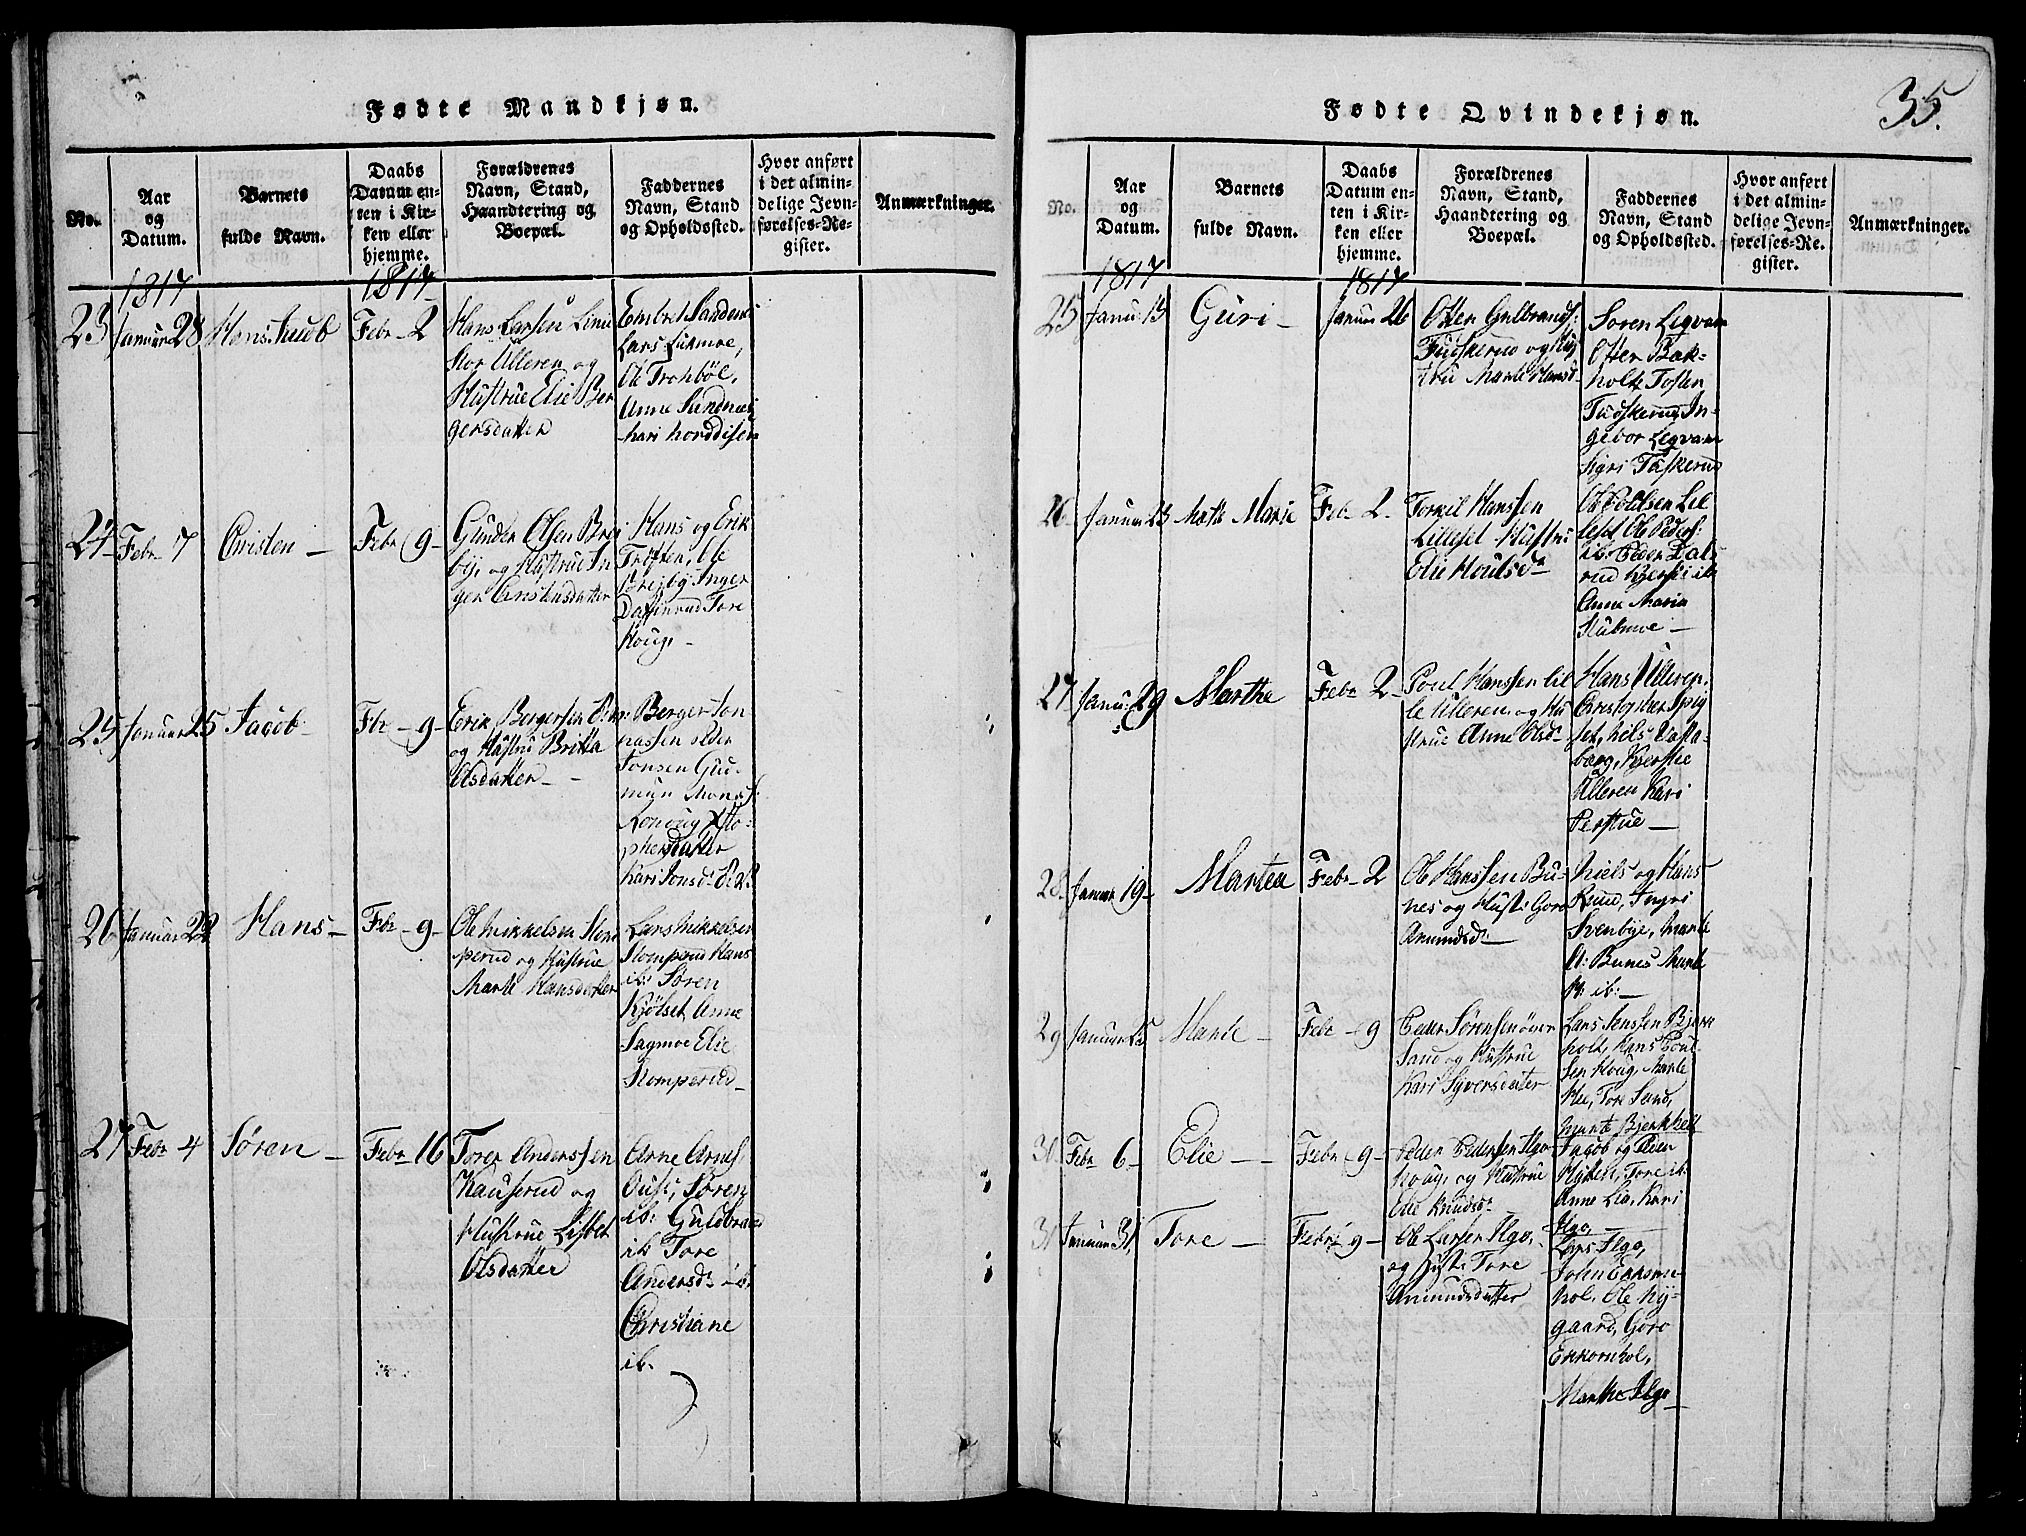 Fødte Mandkjøn.
No.
Aar
og
Datum.
Barnets
fulde Navn.
Daabs
Datum en-
ten i Kir-
ken eller
hjemme.
Forældrenes
Navn, Stand,
Haandtering og
Boepæl.
Faddernes
Navn, Stand
og Opholdssted.
Hvor anført
i det almin-
delige Jevn-
førelses-Re-
gister.
Anmærkninger.
1817
1817
23
Januar 28
Hans Jacob
Febr 2
Hans Larsen
Stor Ulleren og
Hustrue Elie Ber
gersdatter
Embret Sandenes
Lars
Ole Trohböl,
Anne Sandnes
24
Febr 7
Cristen
Febr 9
Gunder Olsen Brei
bye og Hustrue In
ger Cristensdatter
Hans og Erik
Ole
Breiby Inger
Tore
Houg
25
Januar 25
Jacob
Fbr 9
Erik Bergersen
og Hustru Britta
Olsdatter
Berger Jon
nassen
Jonsen Gud-
mun
Xsto-
phersdatter
Kari Jonsd.
26
Januar 22
Hans
Febr 9
Ole Mikkelsen Stom
perud og Hustrue
Marte Hansdatter
Lars Mikkelsen
Stomperud Hans
ib: Søren
Kjölset, Anne
Sagmoe Elie
Stomperud
27
Febr 4
Søren
Febr 16
Torer Anderssen
Kauserud og
Hustrue Lisbet
Olsdatter
Arne Arnes
Oust, Søren
ib: Guldbrand
ib: Tore
Andersd: ib.
Christiane
ib.
Fødte Qvindekjøn.
35.
No.
Aar
og
Datum.
Barnets
fulde Navn.
Daabs
Datum en-
ten i Kir-
ken eller
hjemme.
Forældrenes
Navn, Stand,
Haandtering og
Boepæl.
Faddernes
Navn, Stand
og Opholdssted.
Hvor anført
i det almin-
delige Jevn-
førelses-Re-
gister.
Anmærkninger.
1817
1817
25
Janu: 13
Guri
Januar 26
Otter Gulbrands:
Tuskerud og Hu
stru Marte Hansd
Soren Legvam
Otter Bak-
holt Tosten
Tuskerud In-
gebor Legvam
Sigri Tuskerud
26
Januar 23
Mette Marie
Feb 2
Torkil Hanssen
Lilleset Hustru
Elie Poulsd
Ole Poulsen Lil
leset Ole Peders:
ib. Peder Dals
rud Kjersti ib
Anne Maria
27
Janu: 29
Marthe
Febr 2
Poul Hanssen Lil
le Ulleren og Hu
strue Anne Olsd
Hans Ulleren
Cristopher Spig
set, Nils
berg, Kjerstie
Ulleren Kari
Perstue
28
Januar 19
Marthea
Febr 2
Ole Hanssen Bu-
nes og Hust: Goro
Amundsd:
Niels og Hans
Ruud, Ingri
Svenbye, Marte
O: Bunes Marte
H: ib:
29
Januar 25
Marte
Febr 9
Peder Sørensen over
Sand og Hustrue
Kari Syversdatter
Lars Jenssen Bjerk
holt, Hans Poul
sen Houg, Marte
Hee, Tore Sand,
Marte Bjerkholt
31
Febr 6
Elie
Febr 9
Peder Pedersen Algo
houg, og Hustrue
Elie Knudsd:
Jacob og Peder
Tore ib.
Anne Lia, Kari
Algo,
31
Januar 31
Tore
Febr 9
Ole Larsen Algo,
og Hust: Tore
Amundsdatter
Lars Algo,
John Ekkorn-
hol, Ole Ny-
gaard, Goro
Ekkornhol,
Marthe Algo